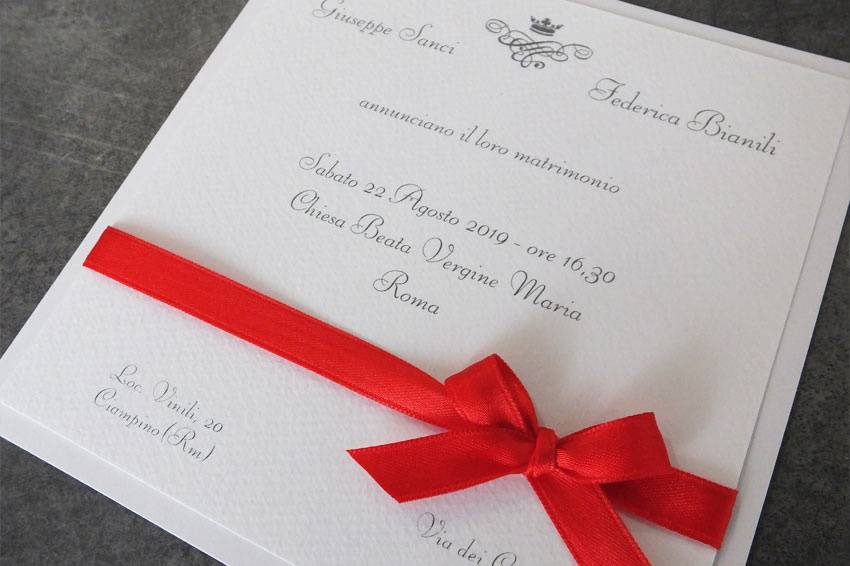 Giuseppe Sanci
Federica Bianili
annunciano il loro matrimonio
Sabato 22 Agosto 2019 - ore 16,30
Chiesa Beata Vergine Maria
Roma
Loc. Vinili, 20
Ciampino (Rm)
Via dei